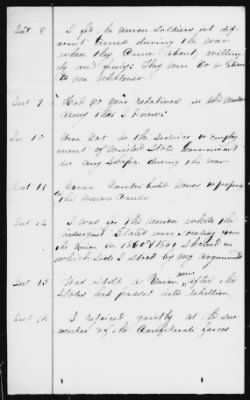 Int 8 I fed the Union soldiers at dif-
ferent times during the war
when they came about, willing
ly and freely; they were to
to me
Int 9 Had no near relatives in the Union
army that I know.
Int 10 Was not in the service or employ-
ment of United States Government
in any shape, during the war.
Int 11 Never
the Union Cause
Int 12 I was for the Union while the
insurgent States were seceding from
the Union in 1860 & 1861, I showed on
which side I stood by my arguments
Int 13 Was still a Union man after the
States had passed into rebellion.
Int 14 I rejoiced greatly at the sur-
render of the Confederate forces